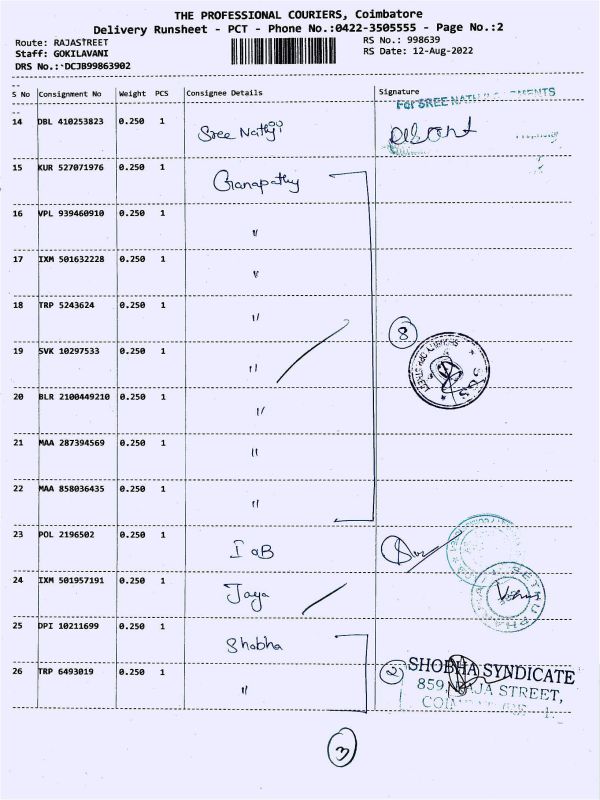 THE PROFESSIONAL COURIERS, Coimbatore
Delivery Runsheet - PCT - Phone No.:0422-3505555 - Page No.:2
Route: RAJASTREET RS No.: 998639
Staff: GOKILAVANI RS Date: 12-Aug-2022
DRS No.: DCJB99863902
S No Consignment No Weight PCS Consignee Details Signature
For SREE NATHJI
14 DBL 410253823 0.250 1 Sree Nathji
15 KUR 527071976 0.250 1 Ganapathy
16 VPL 939460910 0.250 1 "
17 IXM 501632228 0.250 1 "
18 TRP 5243624 0.250 1 "
8
19 SVK 10297533 0.250 1 "
20 BLR 2100449210 0.250 1 "
21 MAA 287394569 0.250 1 "
22 MAA 858036435 0.250 1 "
23 POL 2196502 0.250 1 IOB
24 IXM 501957191 0.250 1 Jaya
25 DPI 10211699 0.250 1 Shobha
26 TRP 6493019 0.250 1 " 2
SHOBHA SYNDICATE
859, RAJA STREET,
3